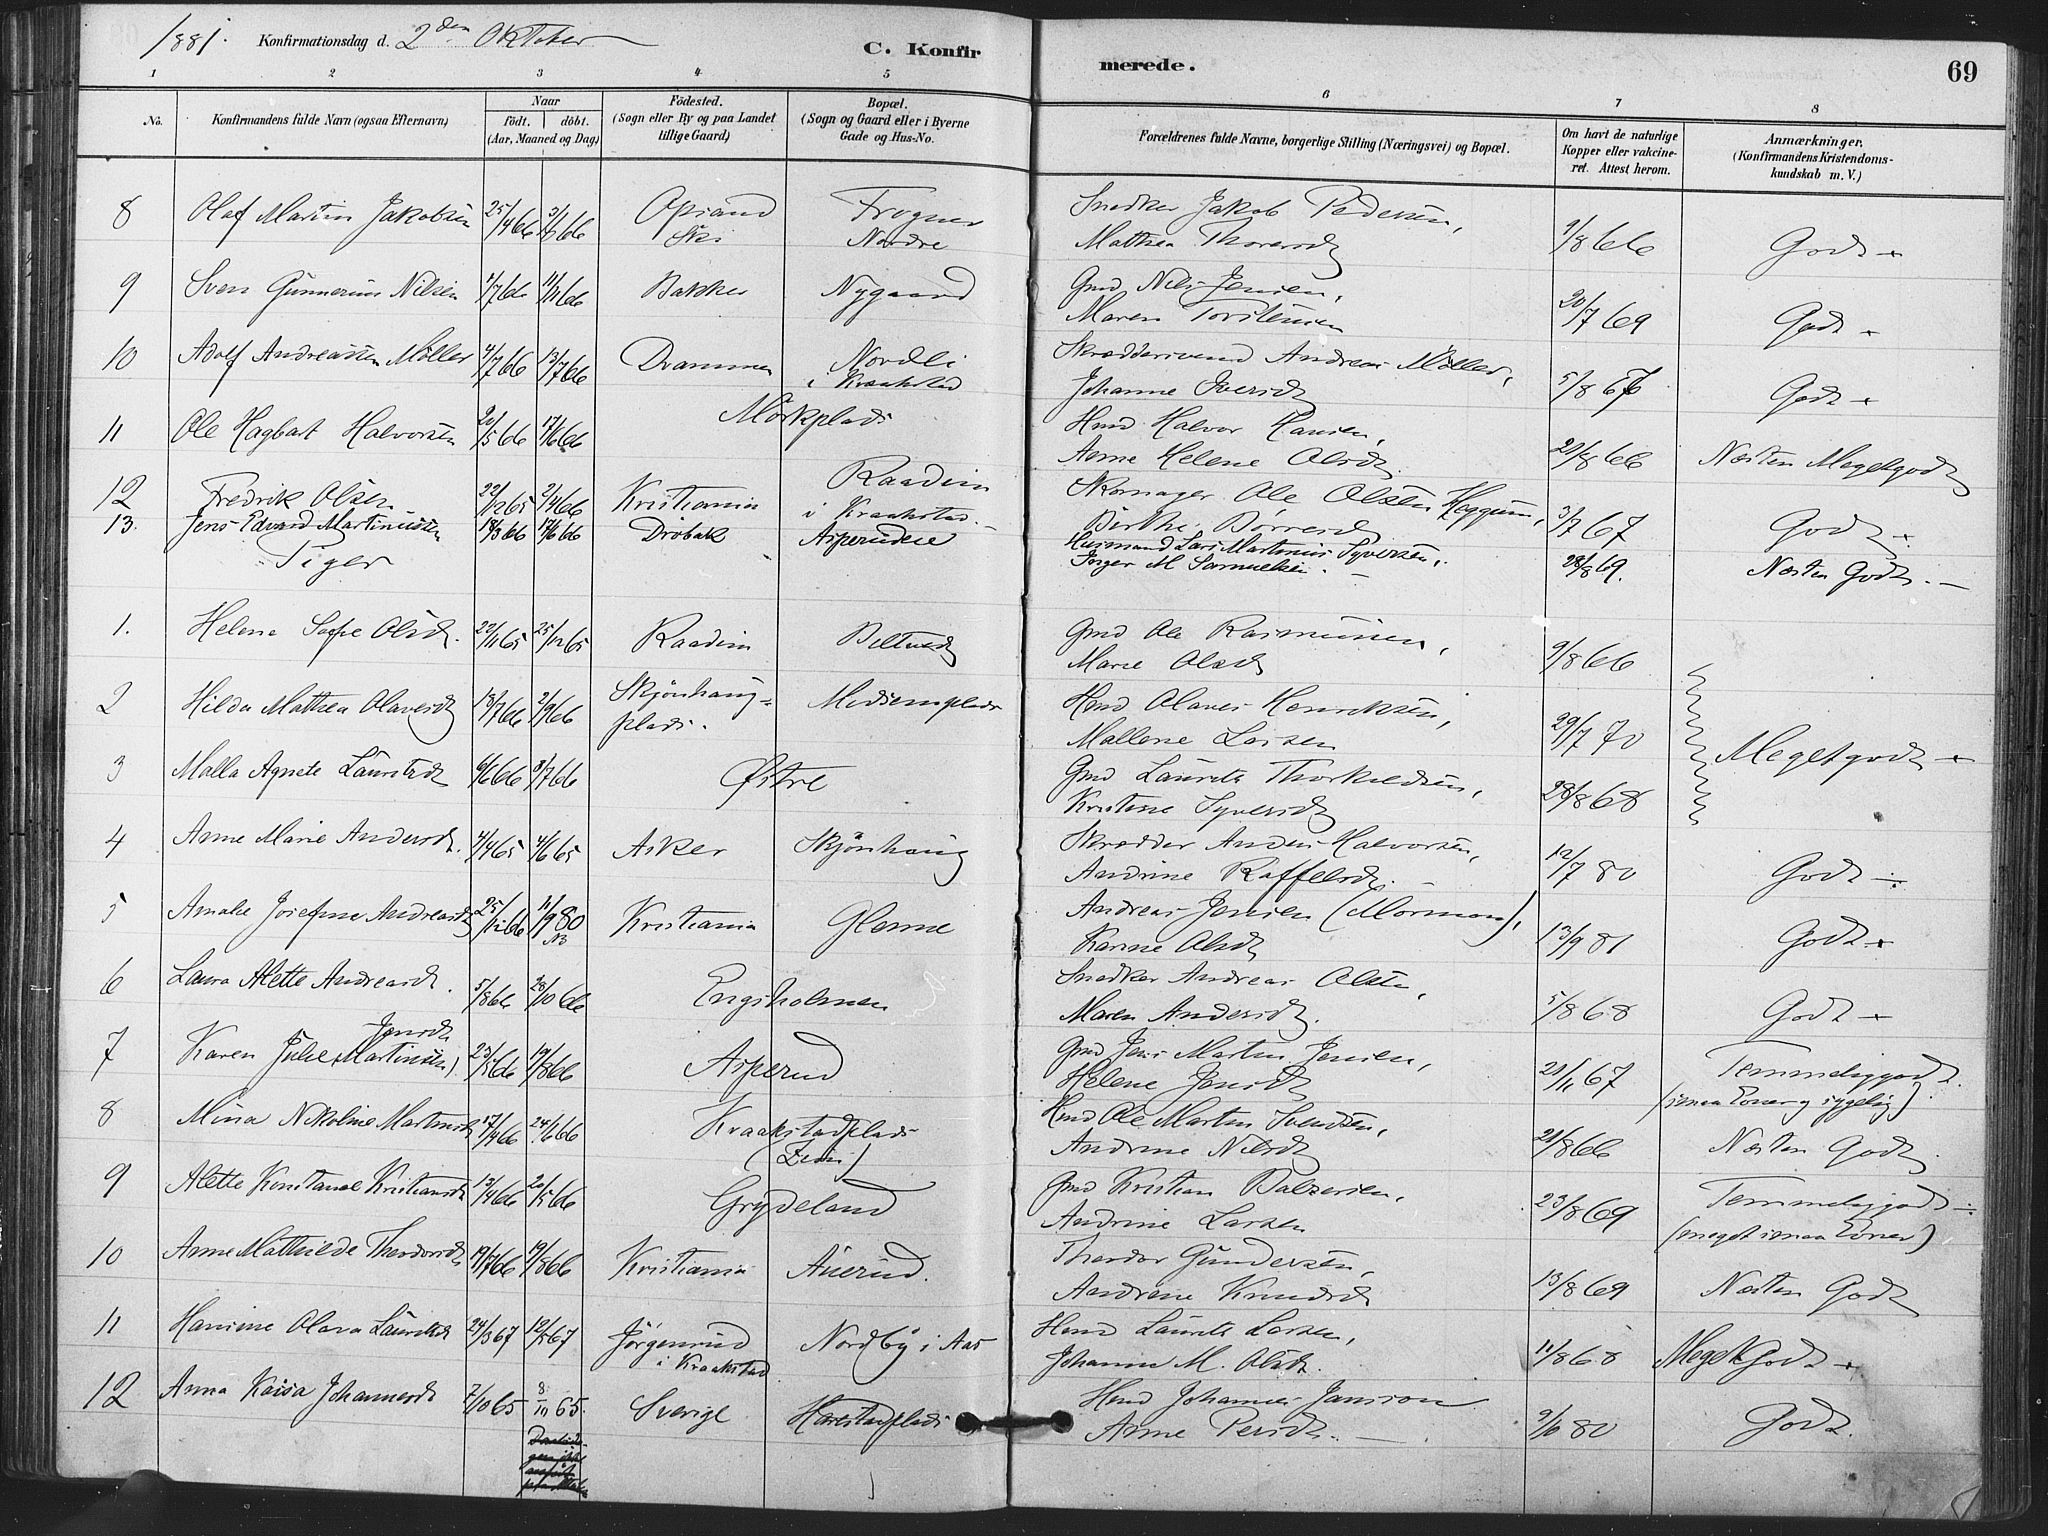 1881. Konfirmationsdag d. 2den Oktober C. Konfirmerede. 69
1 2 3 4 5 6 7 8
No. Konfirmandens fulde Navn (ogsaa Efternavn) Naar födt. döbt. (Aar, Maaned og Dag) Födested. (Sogn eller By og paa Landet tillige Gaard) Bopæl. (Sogn og Gaard eller i Byerne Gade og Hus-No. Forældrenes fulde Navne, borgerlige Stilling (Næringsvei) og Bopæl. Om havt de naturlige Kopper eller vakcineret. Attest herom. Anmærkninger. (Konfirmandens Kristendomskundskab m. V.)
8 Olaf Martin Jakobsen 25/4 66 Ski Frogner Nordre Snedker Jakob Pedersen, Mathea Thoresd. 9/8 66 Godt
9 Sven Gunnerius Nilsen 7/7 66 11/11 66 Bakker Nygaard Gmd Nils Jensen, Maren Torstensen 20/7 69 Godt
10 Adolf Andreassen Möller 4/7 66 13/7 66 Drammen Nordli i Kraakstad Skræddersvend Andreas Möller, Johanne Iversd. 5/8 67 Godt
11 Ole Hagbart Halvorsen 20/5 66 17/6 66 Mörkplads Hmd Halvor Hansen, Anne Helene Olsd. 21/8 66 Næsten Megetgodt
12 Fredrik Olsen 22/12 65 2/4 66 Kristiania Raadim i Kraakstad Skomager Ole Olsen Haggum, Birthe Børresd. 3/7 67 Godt
13. Jens Edvard Martinussen 18/3 66 17/6 66 Dröbak Asperudeie Husmand Lars Martinius Syversen, Inger M Samuelsen 28/8 69. Næsten Godt.
Piger
1. Helene Sofie Olsd. 22/11 65 25/12 65 Raadim Biltved Gmd Ole Rasmussen, Marie Olsd. 9/8 66
2 Hilda Mathea Olavesd. 13/7 66 2/9 66 Skjönhaugplads. Midsemplads Hmd Olaves Henriksen, Mallene Larsen 29/7 70 Megetgodt
3 Malla Agnete Lauritsd. 6/6 66 8/7 66 Østre Gmd Laurits Thorkildsen, Kristine Syversd. 28/8 68
4 Anne Marie Andersd. 4/4 65 4/6 65 Asker Skjönhaug Skrædder Anders Halvorsen, Andrine Raffelsd. 12/7 80 Godt
5 Amalie Josefine Andreasd. 25/12 66 11/9 80 NB Kristiania Glenne Andreas Jensen (Mormon), Karine Olsd. 13/9 81 Godt
6 Laura Alette Andreasd. 5/8 66 28/10 66 Engsholmen Snedker Andreas Olsen, Maren Andersd. 5/8 68 Godt
7 Karen Julie Jensd. (Martinsen) 23/5 66 19/8 66 Asperud Gmd Jens Martin Jensen, Helene Jensd. 21/11 67 Temmeliggodt. (smaa Evner og sygelig)
8 Mina Nikoline Martinsd. 17/4 66 24/6 66 Kraakstadplads Hmd Ole Martin Svendsen, Andrine Nilsd. 21/8 66 Næsten Godt
9 Alette Konstanse Kristiansd. 13/4 66 20/5 66 Grydeland Gmd Kristian Balzersen, Andrine Larsen 23/8 69 Temmeliggodt (meget smaa Evner)
10 Anne Mathilde Theodorsd. 19/7 66 19/8 66 Kristiania Auerud. Theodor Gundersen, Andrine Knudsd. 13/8 69 Næsten Godt
11 Hansine Olava Lauritsd. 24/3 67 12/5 67 Jörgenrud i Kraakstad Nordby i Aas Hmd Laurits Larsen, Johanne M. Olsd. 11/8 68 Meget Godt
12 Anna Kaisa Johannesd. 7/10 65 8/10 65. Sverige Harestadplads Hmd Johannes Jansson Anne Persd. 9/6 80 Godt.